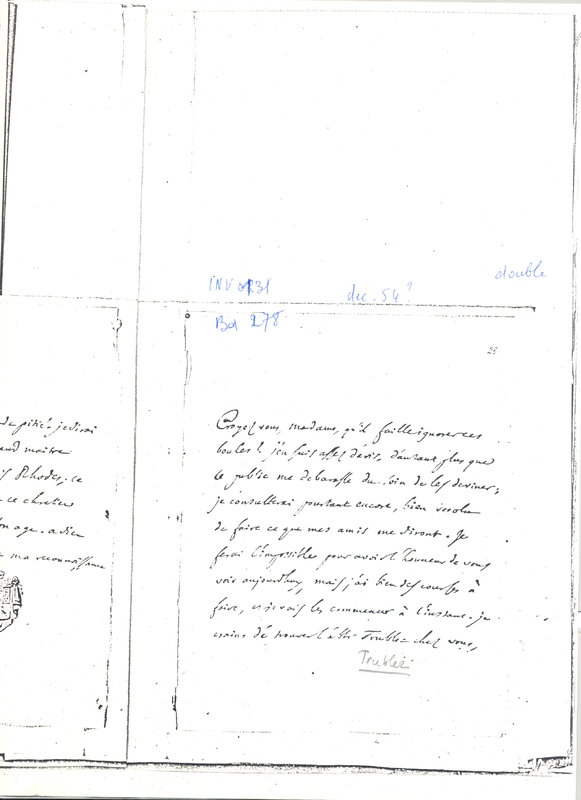 INV 0231
dec. 54?
double
Bd 278
25
de pitié. je dirai
and maitre
is Rhodes. ce
ce chretien
on age. adieu
e ma reconnoissance
Croyez vous, madame, qu'il faille ignorer ces
boules? j'en suis assez d'avis, d'autant plus que
le public me debarasse du soin de les deviner;
je consulterai pourtant encore, bien resolu
de faire ce que mes amis me diront. Je
ferai l'impossible pour avoir l'honneur de vous
voir aujourdhuy, mais j'ai bien des courses à
faire, et je vais les commencer à l'instant. je
crains de trouver l'abbé Trublet chez vous,
Trublet